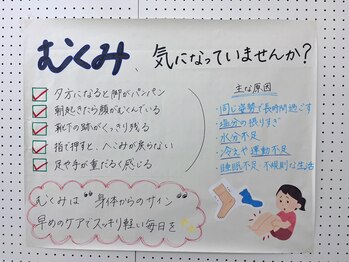 むくみ、気になっていませんか？
夕方になると脚がパンパン
朝起きたら顔がむくんでいる
靴下の跡がくっきり残る
指で押すと、へこみが戻らない
足や手が重だるく感じる
主な原因
・同じ姿勢で長時間過ごす
・塩分の摂りすぎ
・水分不足
・冷えや運動不足
・睡眠不足 不規則な生活
むくみは“身体からのサイン”
早めのケアでスッキリ軽い毎日を